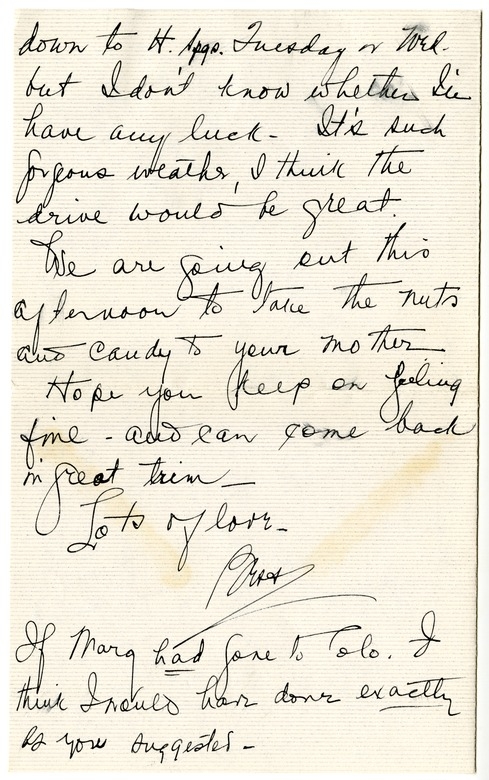 down to H. Spgs. Tuesday or Wed.
but I don't know whether I'll
have any luck - It's such
gorgeous weather, I think the
drive would be great.
We are going out this
afternoon to take the nuts
and candy to your mother
Hope you keep on feeling
fine - and can come back
in great trim -
Lots of love -
Bess
If Marg had gone to Colo. I
think I would have done exactly
as you suggested -